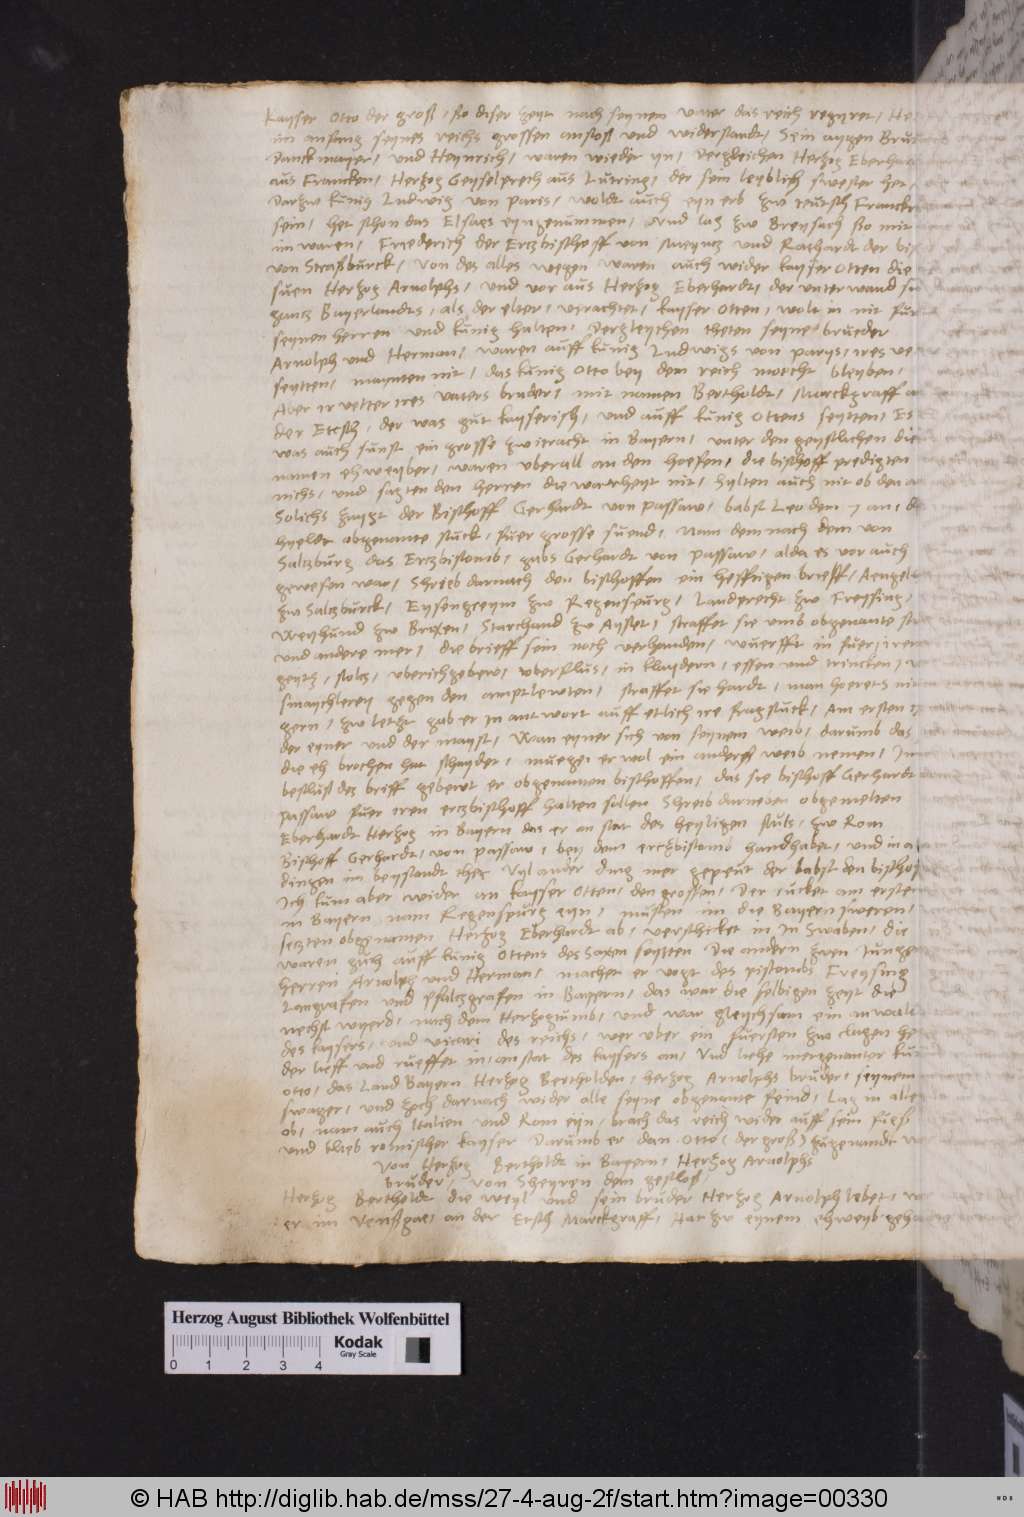 Kayser Otto der groß / so diser heyt nach seynen vater das reich regyret / He
im anfang seynes reichs grossen anstoß und widerstandt / Sein aygen Bru
Danckmayer / und Heynrich / waren wieder yn / Dergleichen Herzog Eberhar
aus Francken / Herzog Geyselprech aus Lutring / der sein leyblich swester het /
Darzw kunig Ludwig von Paris / woldt auch eyn erb zw teutsch Franckr
sein / het schon das Elsaes eyngenummen / Vnd lag zw Breysach so mit
im waren / Friederich der Erczbischoff von Meyncz und Rathardt der bis
von Straßburck / Von des alles wegen waren auch wider kayser Otten die
suen Herzog Arnolphs / und vor aus Herzog Eberhardt / der unter wand si
gancz Bayerlandts / als der elter / verachtet / kayser Otten / wolt in nit fur
seynen herren und kunig halten / Dergleychen theten seyne brueder
Arnolph und Herman / waren auff kunig Ludwigs von parys / ires ve
seytten / maynten nit / das kunig Otto bey dem reich mocht bleyben /
Aber ir vetter ires vaters bruder / mit namen Bertholdt / Marckgraff a
der Etsch / der was gut kayserisch / und auff kunig Ottens seytten / Es
was auch sunst ein grosse zwitracht in Bayern / unter den geystlichen die
namen ehweyber / waren uberall an den hoefen / die bischoff predigten
nichs / und sagten den herren die warheyt nit / hylten auch nit ob den
Solichs zaygt der Bischoff Gerhardt von passaw / babst Leo dem 7 an / d
hyeldt obgenante stuck / fuer grosse suend / Nam dem nach dem von
Saltzburg das Erczbistomb / gabs Gerhardt von passaw / alda es vor auch
gewesen war / Schrieb darnach den bischoffen ein hefftigen brieff / Aengel
zw Saltzburck / Eysengreym zw Regenspurg / Landprecht zw Freysing /
Weyhund zw Brixen / Starchand zw Aystet / straffet sie umb obgenante st
und andere mer / die brieff sein noch verhanden / wuerfft in fuer / iren
geytz / stolz / uberichgebew / uberflus / in klaydern / essen und trincken /
smaychlerey gegen den amptlewten / straffet sie hardt / man hoerets nit
gern / zw letzt gab er in antwort auff etlich ire fragstuck / Am ersten
der eyner und der mayst / Wan eyner sich von seynem weib / darumb das
die eh brochen hat schaydet / mueg er wol ein anderß weib nemen / Im
beslus des briff gebewt er obgenannten bischoffen / das sie bischoff Gerhardt
passaw fuer iren erczbischoff halten sollen Schreib darneben obgemelten
Eberhardt Herzog in Bayern das er an stat des heyligen stuls / zw Rom
Bischoff Gerhardt / von passaw / bey dem erczbistomb handhabet / und in a
dingen im beystandt thet Vyl ander ding mer gepeut der babst den bischof
Ich kum aber weider an kayser Otten / den grossen / Der rucket am ersten
in Bayern nam Regenspurg eyn / musten im die Bayern sweren /
setzten obgenannten Herzog Eberhardt ab / verschicket in in Swaben / die
waren auch auff kunig Ottens des Saxen seytten Die andern zwen Junge
herren Arnolph und Herman / machet er vogt des pistombs Freysing
Langrafen und pfalczgrafen in Bayern / das war die selbigen zeyt die
nechst wyerd / nach dem Herzogtumb / und war gleychsam ein anwalt
des kaysers / und vicari des reichs / wer uber ein fuersten zw clagen he
der lieff und rueffet in / an stat des kaysers an / Vnd liehe mergenanter ku
Otto / das Land Bayern Herzog Bertholden / herzog Arnolphs bruder / seynem
swager / und zoch darnach wider alle seyne obgenante feind / Lag in alle
ob / nam auch Italien und Rom eyn / brach das reich wider auff sein fueß
und blieb romischer kayser Darumb er dan Otto (der groß) zugenandt w
Von Herzog Bertholdt in Bayern / Herzog Arnolphs
bruder / von Scheyren dem geschloß /
Herzog Bertholdt die weyl und sein bruder Herzog Arnolph lebet / w
er im Venßgae / an der Etsch Marckgraff / Hat zw eynem ehweyb geha
Herzog August Bibliothek Wolfenbüttel
Kodak
Gray Scale
0 1 2 3 4
© HAB http://diglib.hab.de/mss/27-4-aug-2f/start.htm?image=00330